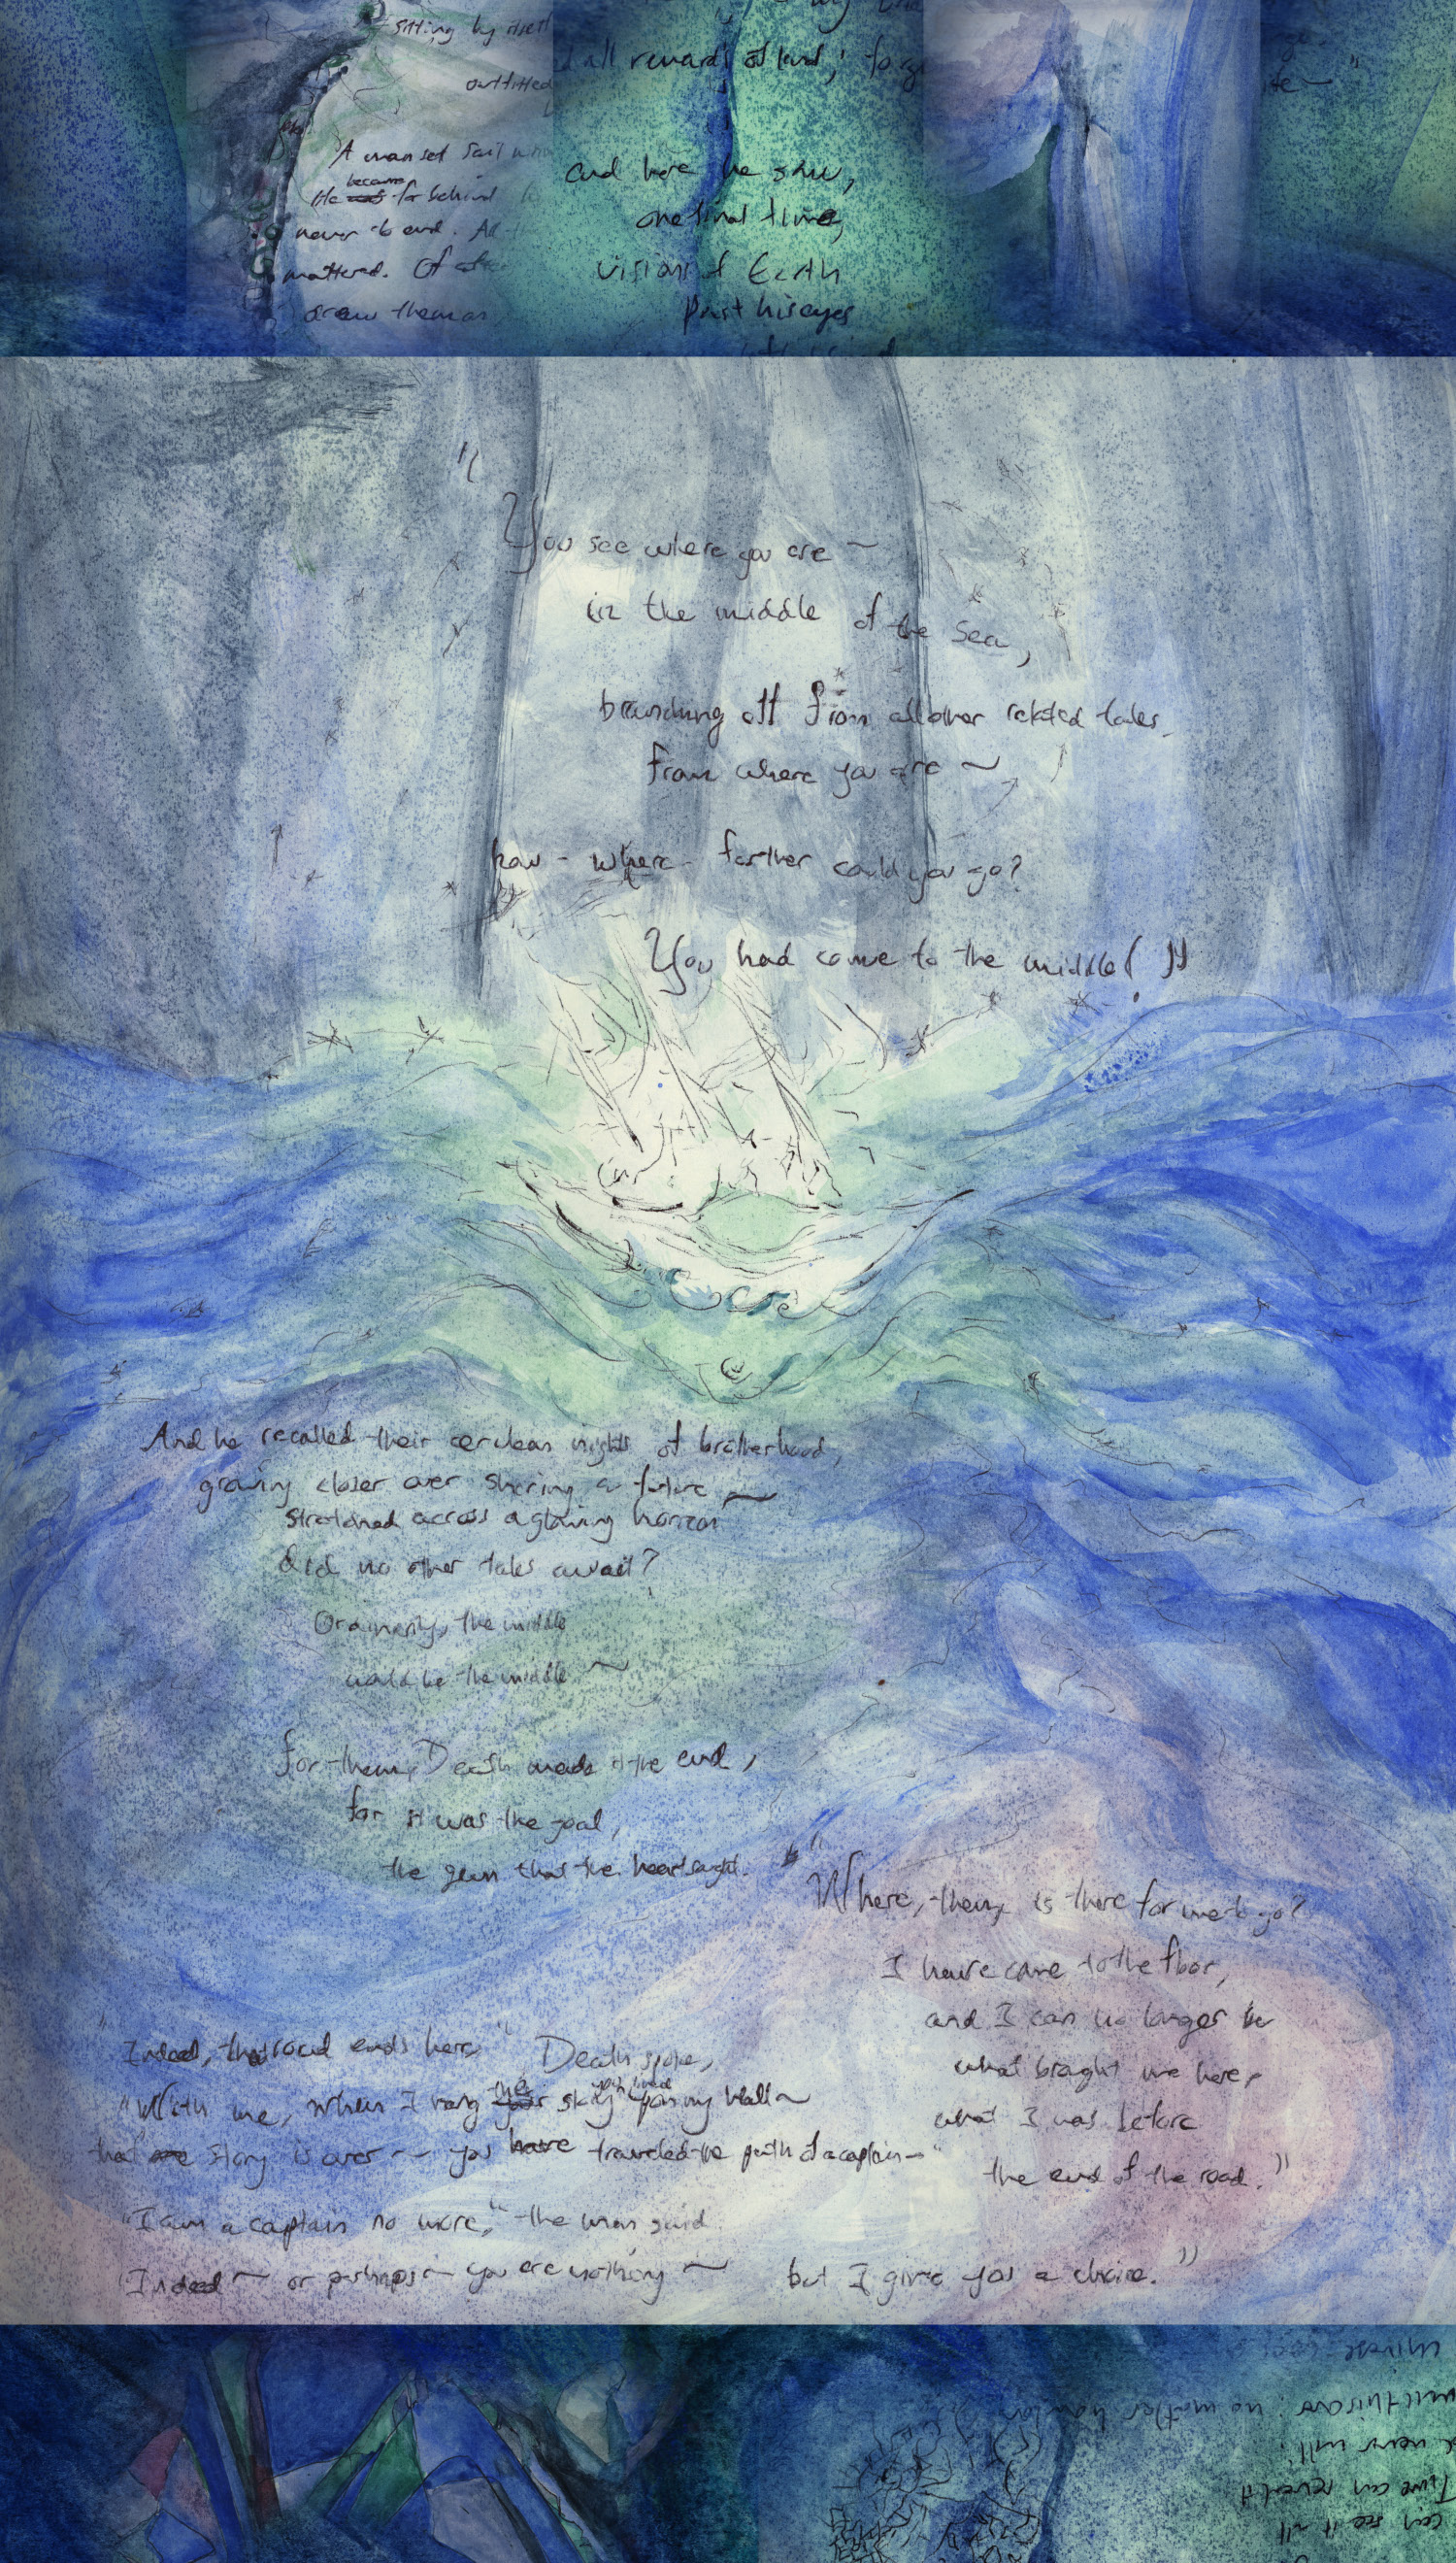 sitting by itself
outfitted
A man set sail
became
He was far behind
never to end. All
mattered. Of
drew them on
all rewards of land,
and here he saw,
one final time,
visions of Earth
past his eyes
"You see where you are ~
in the middle of the sea,
branching off from all other related tales.
From where you are ~
how - where - farther could you go?
You had come to the middle!"
And he recalled their cerulean nights of brotherhood,
growing closer over sharing a future ~
stretched across a glowing horizon
did no other tales await?
Ordinarily, the middle
would be the middle ~
for them, Death made it the end,
for it was the goal,
the gem that the heart sought.
"Where, then, is there for me to go?
I have come to the floor,
and I can no longer be
what brought me here,
what I was before
the end of the road."
"Indeed, the road ends here," Death spoke,
"With me, when I hang the story you lived upon my wall ~
that story is over ~ you have traveled the path of a captain ~"
"I am a captain no more," the man said.
"Indeed ~ or perhaps ~ you are nothing ~ but I give you a choice."
universe
no matter how long
never will
Time can reveal it
can see it all